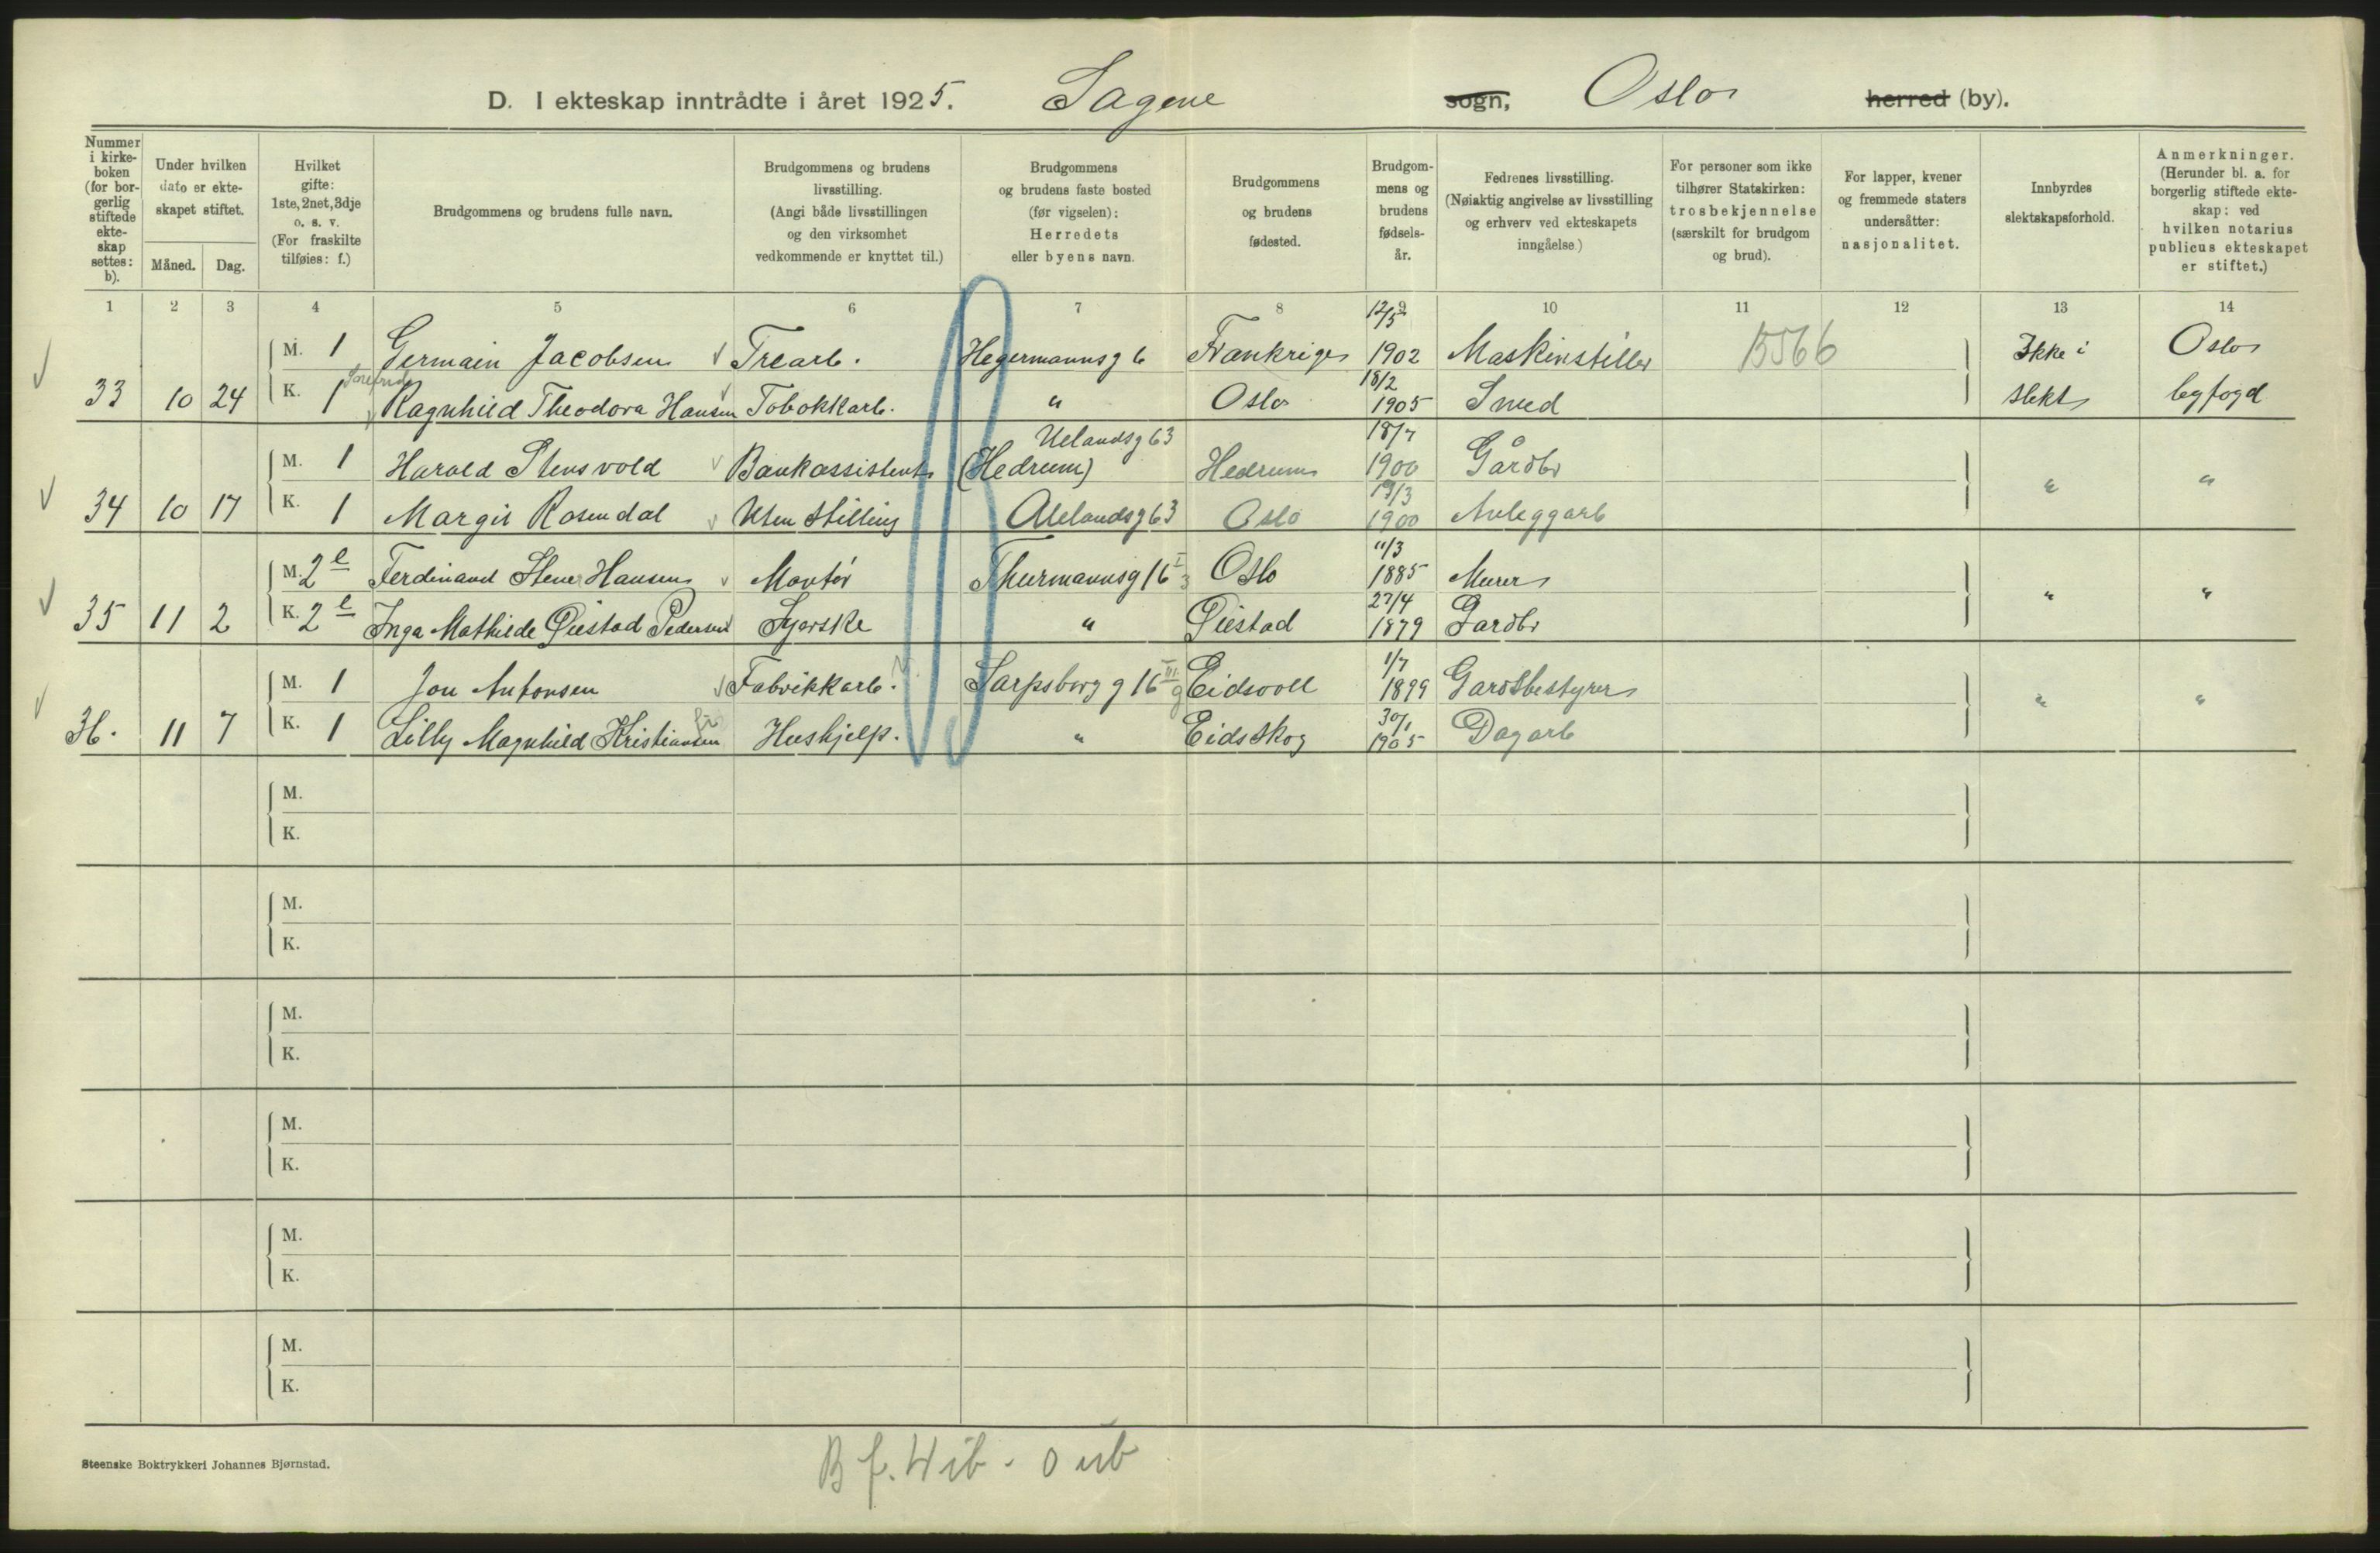 D. I ekteskap inntrådte i året 1925. Sagene sogn, Oslo herred (by).
Nummer i kirkeboken (for borgerlig stiftede ekteskap settes: b).
Under hvilken dato er ekteskapet stiftet.
Måned. Dag.
Hvilket gifte: 1ste, 2net, 3dje o. s. v. (For fraskilte tilføies: f.)
Brudgommens og brudens fulle navn.
Brudgommens og brudens livsstilling. (Angi både livsstillingen og den virksomhet vedkommende er knyttet til.)
Brudgommens og brudens faste bosted (før vigselen): Herredets eller byens navn.
Brudgommens og brudens fødested.
Brudgommens og brudens fødselsår.
Fedrenes livsstilling. (Nøiaktig angivelse av livsstilling og erhverv ved ekteskapets inngåelse.)
For personer som ikke tilhører Statskirken: trosbekjennelse (særskilt for brudgom og brud).
For lapper, kvener og fremmede staters undersåtter: nasjonalitet.
Innbyrdes slektskapsforhold.
Anmerkninger. (Herunder bl. a. for borgerlig stiftede ekteskap: ved hvilken notarius publicus ekteskapet er stiftet.)
1 2 3 4 5 6 7 8 9 10 11 12 13 14
M. 1 Germain Jacobsen Trearb. Hegermannsg 6 Frankrige 12/5 1902 Maskinstiller 15566 Ikke i Oslo
33 10 24 K. 1 Ragnhild Theodora Hansen Tobokkarb. " Oslo 18/2 1905 Smed slekt byfogd
Uelandsg 63
M. 1 Harald Stensvold Bankassistent (Hedrum) Hedrum 18/7 1900 Gårdbr
34 10 17 K. 1 Margit Rosendal Uten stilling Uelandsg 63 Oslo 19/3 1900 Anleggarb " "
M. 2 e Ferdinand Stene Hansen Montør Thurmannsg 16 I 3 Oslo 11/3 1885 Murer
35 11 2 K. 2 e Inga Mathilde Øiestad Pedersen Syerske " Øiestad 27/4 1879 Gardbr " "
M. 1 Jon Antonsen Fabrikkarb. Sarpsborg g 16 III g Eidsvoll 1/7 1899 Gardsbestyrer
36. 11 7 K. 1 Lilly Magnhild Kristiansen Hushjelp. " Eidsskog 30/1 1905 Dagarb " "
M.
K.
M.
K.
M.
K.
M.
K.
M.
K.
M.
K.
Steenske Boktrykkeri Johannes Bjørnstad.
B f. 4 ib - 0 ub